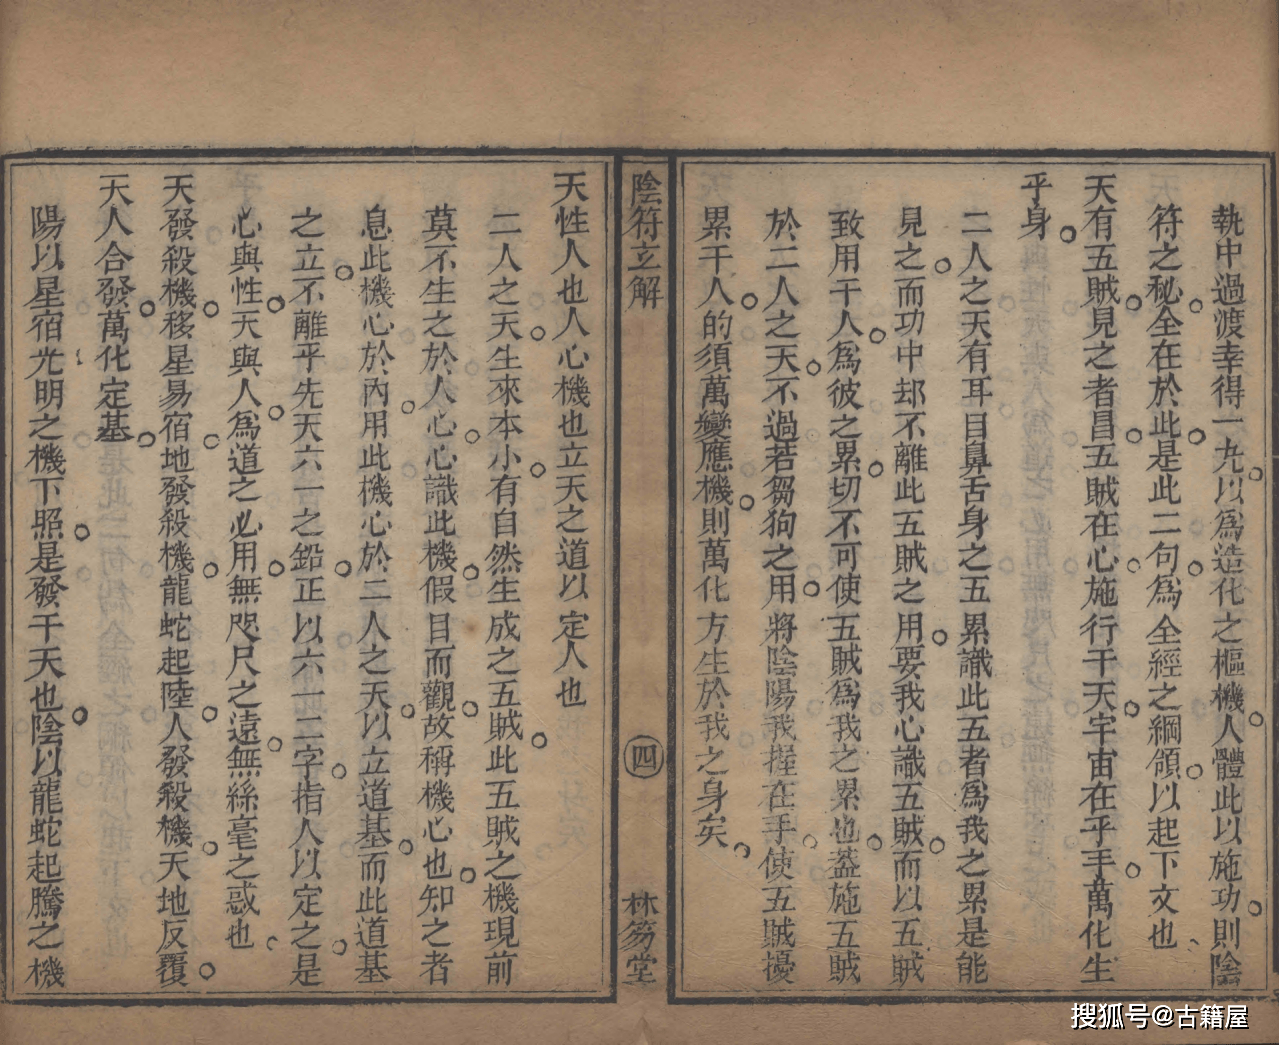 執中過渡幸得一九以為造化之樞機人體此以施功則陰
符之秘全在於此是此二句為全經之綱領以起下文也
天有五賊見之者昌五賊在心施行于天宇宙在乎手萬化生
乎身
二人之天有耳目鼻舌身之五累識此五者為我之累是能
見之而功中却不離此五賊之用要我心識五賊而以五賊
致用于人為彼之累切不可使五賊為我之累也蓋施五賊
於二人之天不過若芻狗之用將陰陽我握在手使五賊擾
累于人的須萬變應機則萬化方生於我之身矣
陰符立解
四
林芴堂
天性人也人心機也立天之道以定人也
二人之天生來本小有自然生成之五賊此五賊之機現前
莫不生之於人心心識此機假目而觀故稱機心也知之者
息此機心於內用此機心於二人之天以立道基而此道基
之立不離乎先天六一之鉛正以六一二字指人以定之是
心與性天與人為道之必用無咫尺之遠無絲毫之惑也
天發殺機移星易宿地發殺機龍蛇起陸人發殺機天地反覆
天人合發萬化定基
陽以星宿光明之機下照是發于天也陰以龍蛇起騰之機
搜狐号@古籍屋